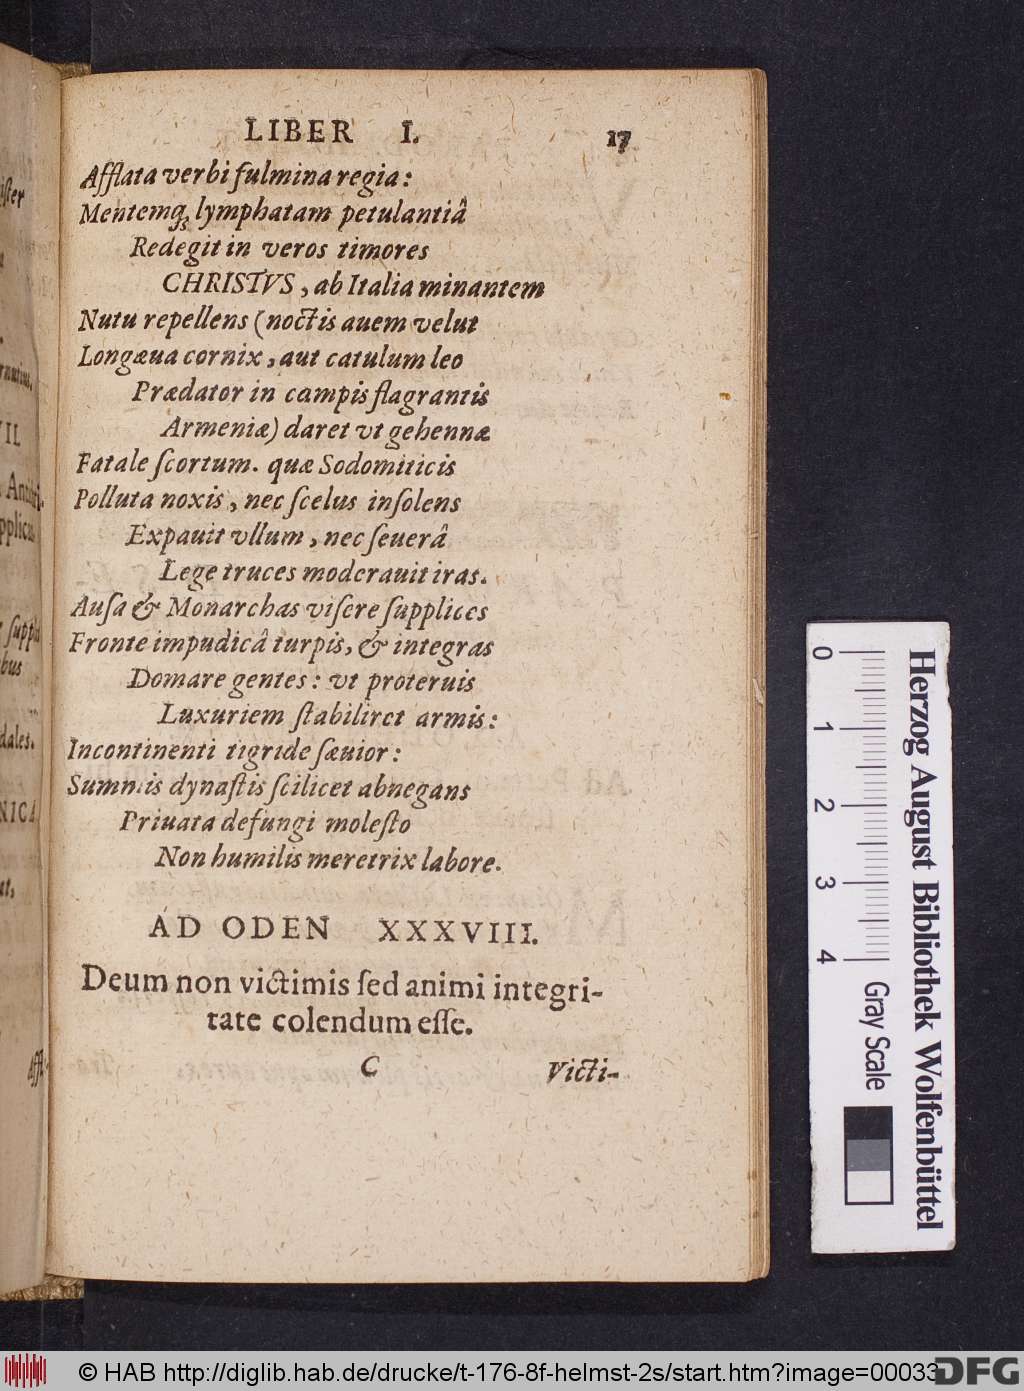 LIBER I. 17
Afflata verbi fulmina regia:
Mentemq́; lymphatam petulantiâ
Redegit in veros timores
CHRISTVS, ab Italia minantem
Nutu repellens (noctis auem velut
Longæua cornix, aut catulum leo
Prædator in campis flagrantis
Armeniæ) daret vt gehennæ
Fatale ſcortum. quæ Sodomiticis
Polluta noxis, nec ſcelus inſolens
Expauit vllum, nec ſeuerâ
Lege truces moderauit iras.
Auſa & Monarchas viſere ſupplices
Fronte impudicâ turpis, & integras
Domare gentes: vt proteruis
Luxuriem ſtabiliret armis:
Incontinenti tigride ſæuior:
Summis dynaſtis ſcilicet abnegans
Priuata defungi moleſto
Non humilis meretrix labore.
AD ODEN XXXVIII.
Deum non victimis ſed animi integri-
tate colendum eſſe.
C Victi-
0 1 2 3 4
Herzog August Bibliothek Wolfenbüttel
Gray Scale
© HAB http://diglib.hab.de/drucke/t-176-8f-helmst-2s/start.htm?image=00033
DFG